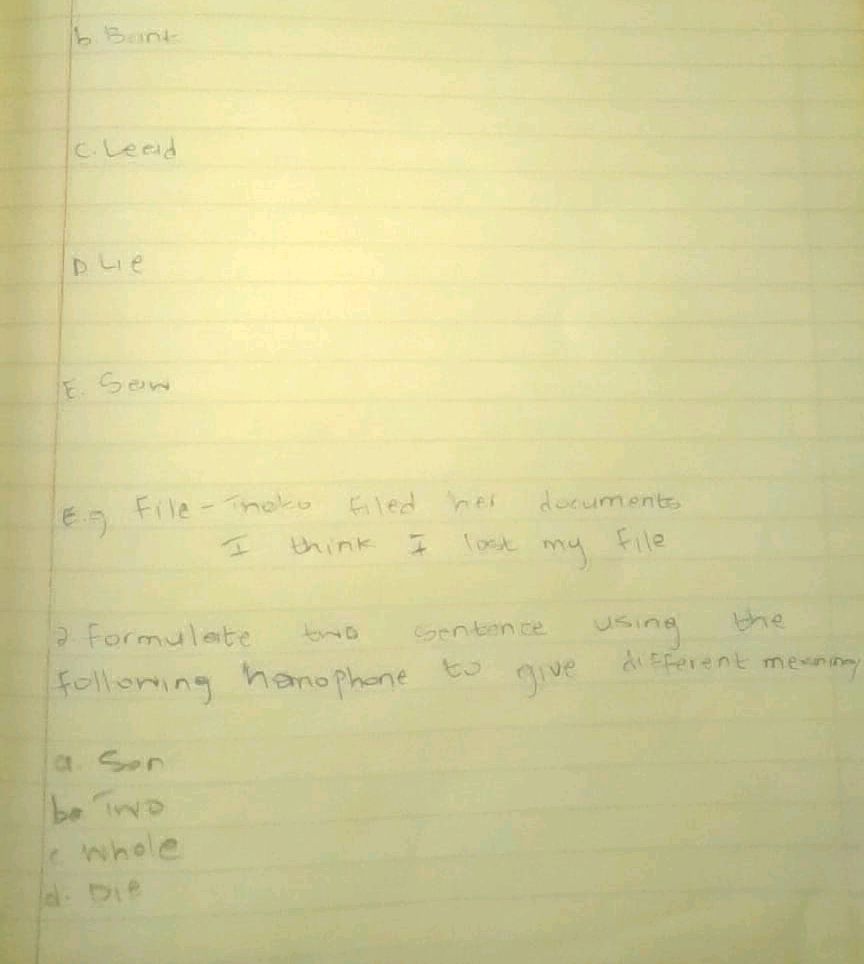 b. Bank
C. Lead
D. Lie
E. Saw
E.g File - Inoko filed her documents
I think I lost my file
2 Formulate two sentence using the
following homophone to give different meaning
a. Son
b. Two
c. Whole
d. Die